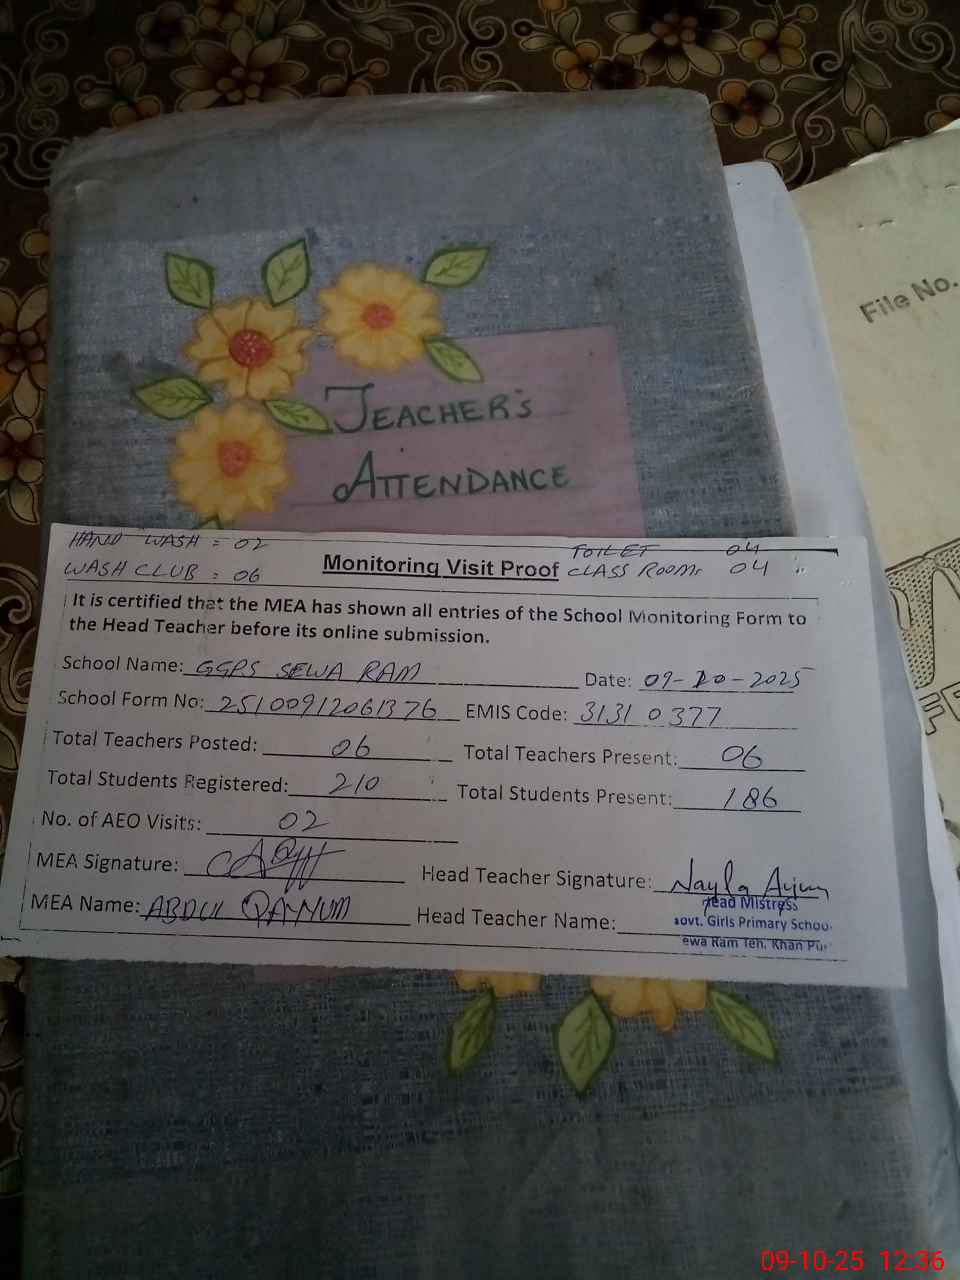 File No.
TEACHER'S
ATTENDANCE
HAND WASH = 02 TOILET 04
WASH CLUB : 06 Monitoring Visit Proof CLASS ROOMS 04
It is certified that the MEA has shown all entries of the School Monitoring Form to
the Head Teacher before its online submission.
School Name: GGPS SEWA RAM Date: 09-10-2025
School Form No: 25100912061376 EMIS Code: 31310377
Total Teachers Posted: 06 Total Teachers Present: 06
Total Students Registered: 210 Total Students Present: 186
No. of AEO Visits: 02
MEA Signature: Head Teacher Signature: Nayla
MEA Name: ABDUL QAYYUM Head Teacher Name:
Head Mistress
Govt. Girls Primary Schoo
ewa Ram Teh. Khan Pu
09-10-25 12:36